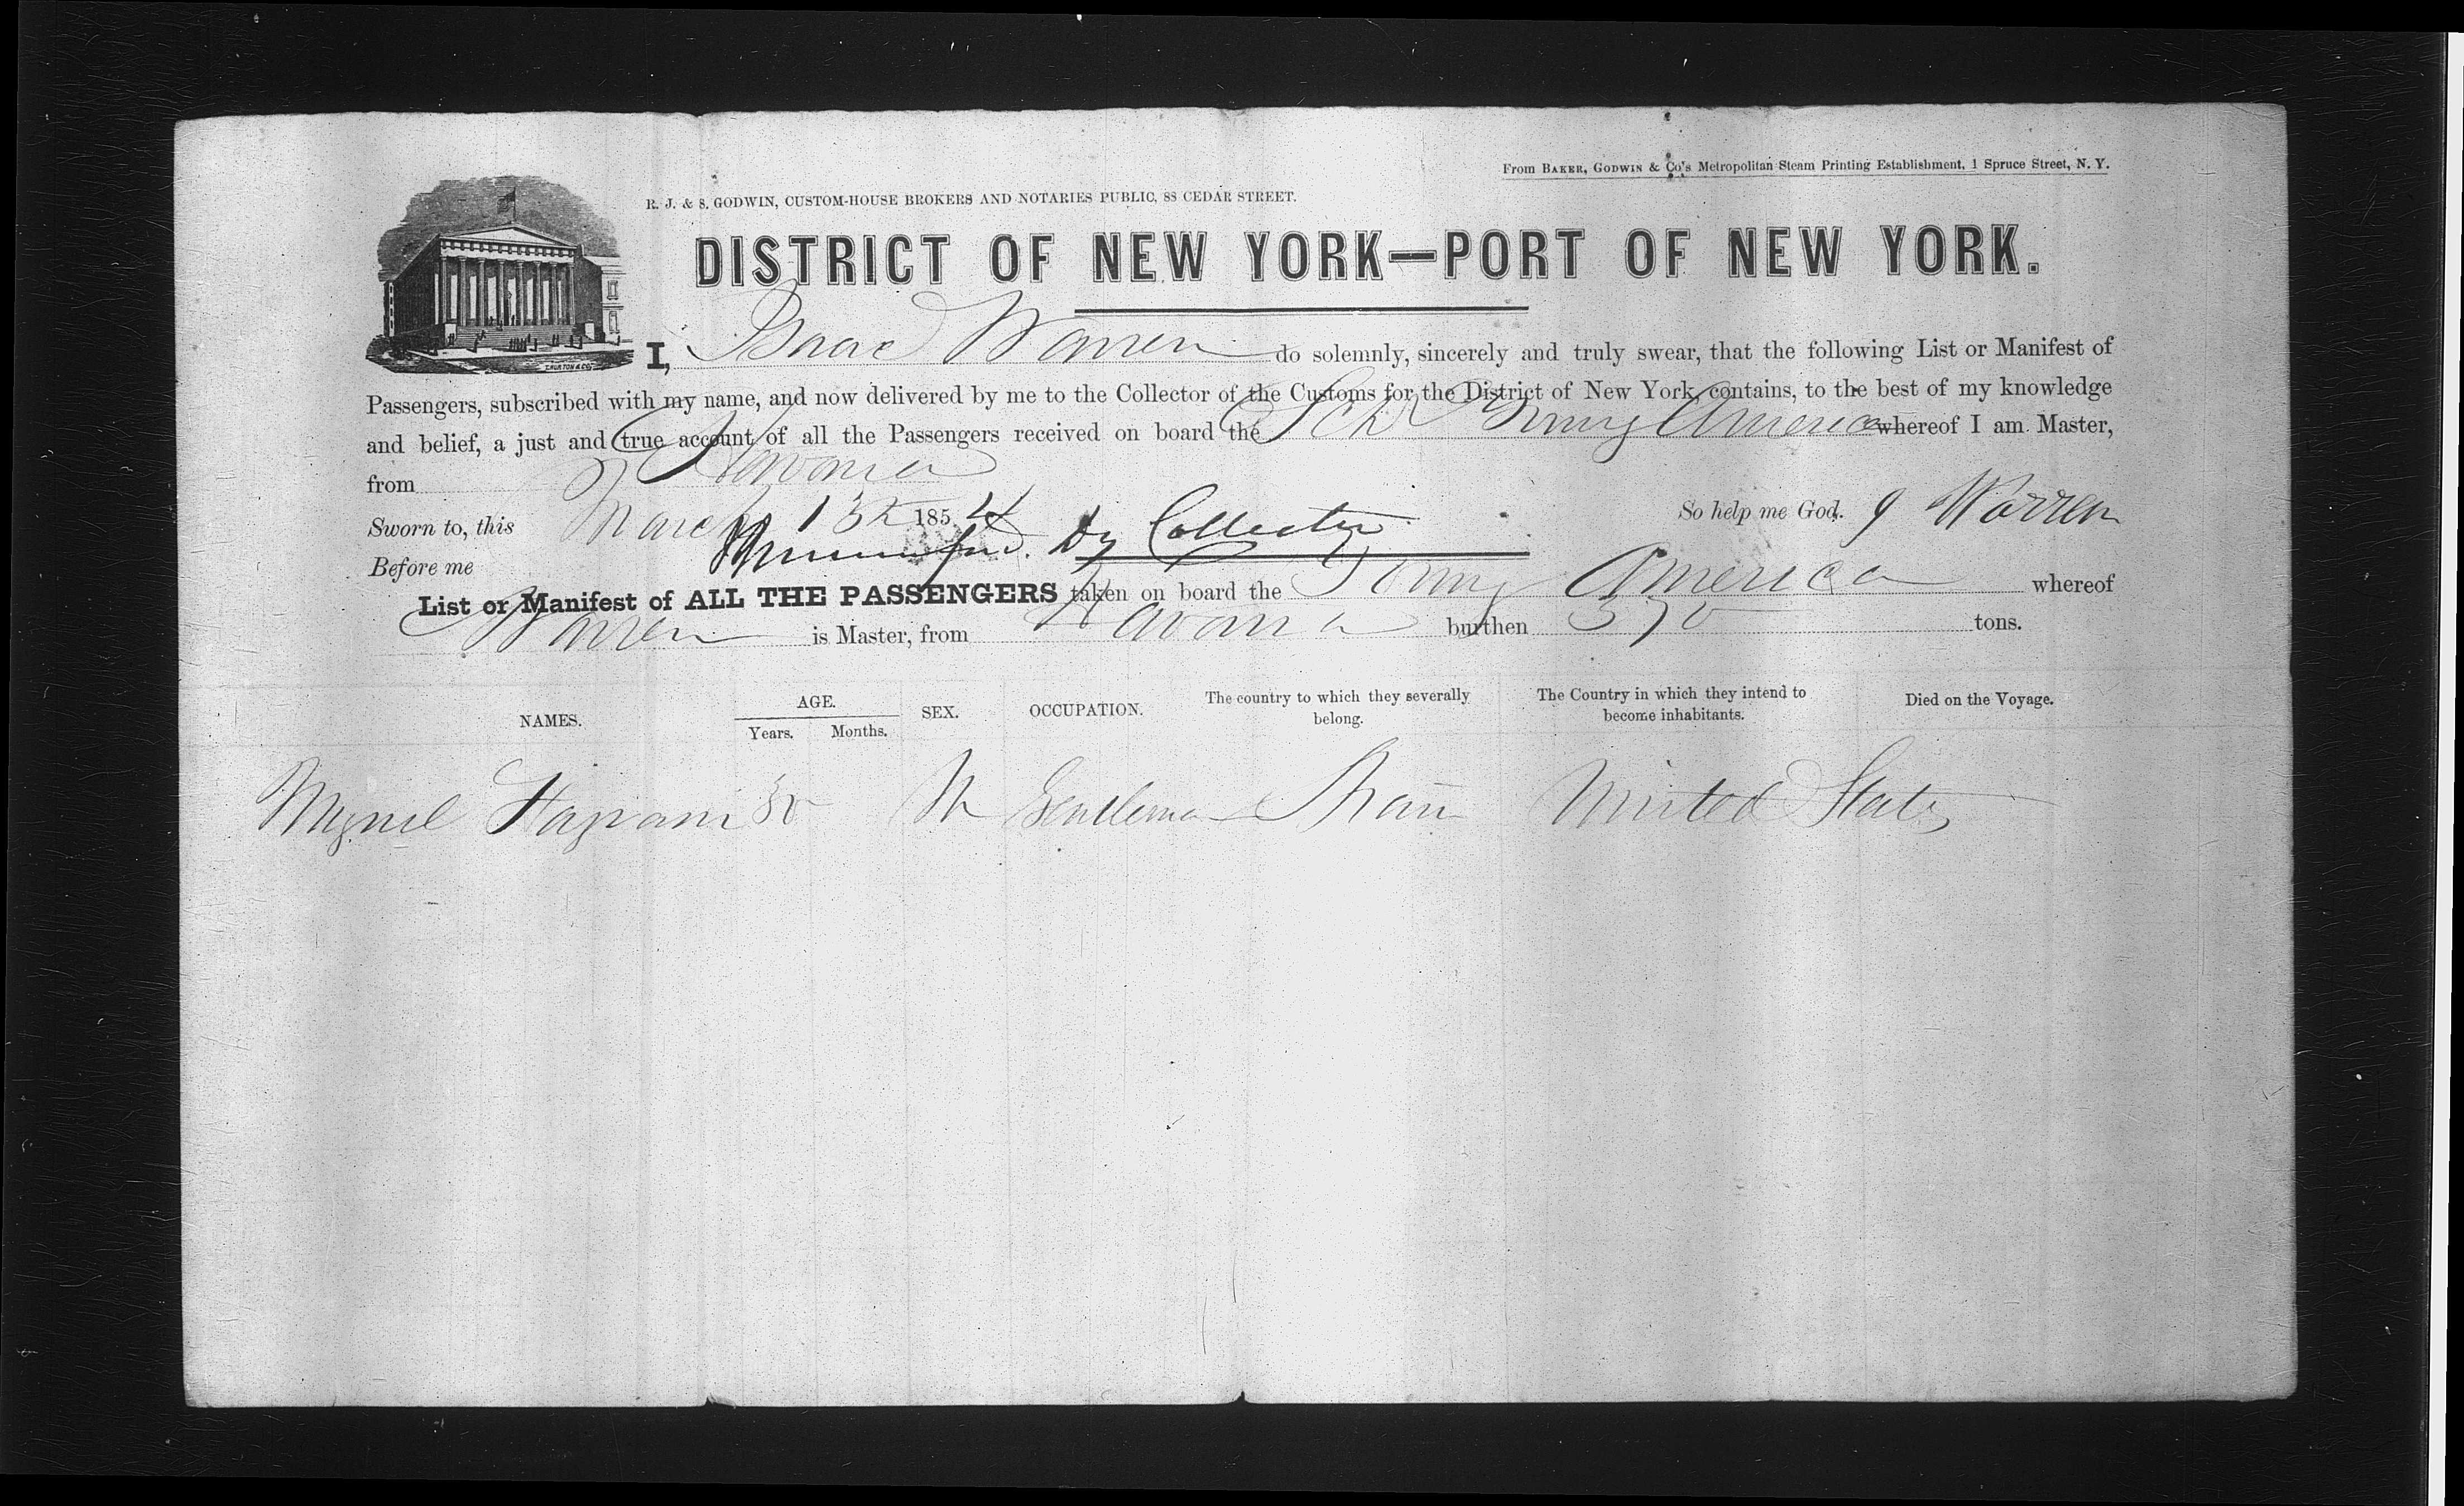 From BAKER, GODWIN & Co's Metropolitan Steam Printing Establishment, 1 Spruce Street, N. Y.
R. J. & S. GODWIN, CUSTOM-HOUSE BROKERS AND NOTARIES PUBLIC, 88 CEDAR STREET.
DISTRICT OF NEW YORK—PORT OF NEW YORK.
I, Isaac Warren do solemnly, sincerely and truly swear, that the following List or Manifest of
Passengers, subscribed with my name, and now delivered by me to the Collector of the Customs for the District of New York, contains, to the best of my knowledge
and belief, a just and true account of all the Passengers received on board the Schr Young America whereof I am Master,
from Havana
Sworn to, this March 13 1854 So help me God. I Warren
Before me Dy Collector
List or Manifest of ALL THE PASSENGERS taken on board the Young America whereof
Warren is Master, from Havana burthen 370 tons.
NAMES. AGE. Years. Months. SEX. OCCUPATION. The country to which they severally belong. The Country in which they intend to become inhabitants. Died on the Voyage.
30 M Gentleman Spain United States